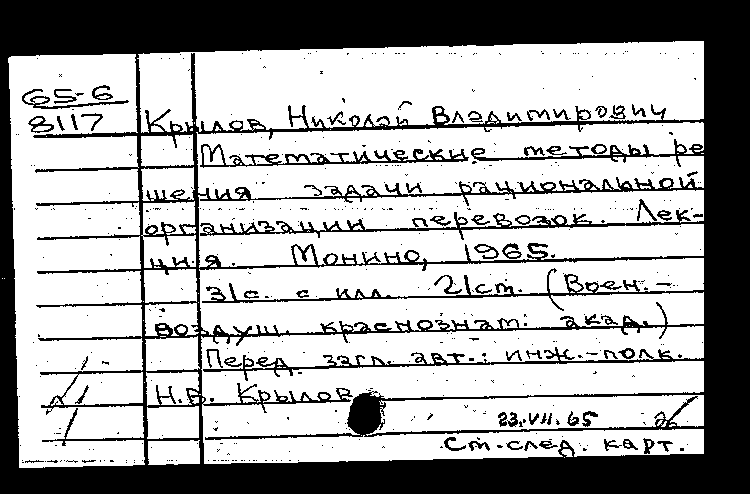 65-6
8117
Крылов, Николай Владимирович
Математические методы ре
шения задачи рациональной
организации перевозок. Лек-
ция. Монино, 1965.
31с. с илл. 21ст. (Воен.-
воздуш. краснознам: акад.)
Перед. загл. авт.: инж.-полк.
Н.В. Крылов
23.VII.65
См. след. карт.